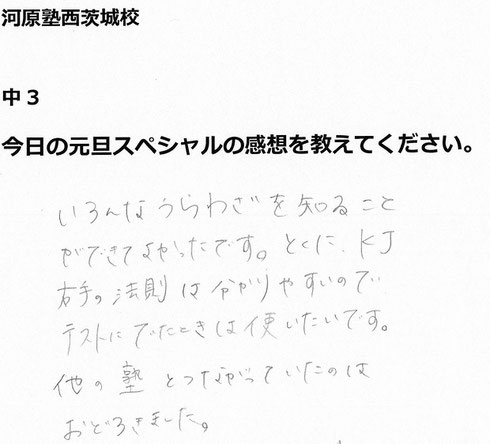 河原塾西茨城校
中3
今日の元旦スペシャルの感想を教えてください。
いろんなうらわざを知ること
ができてよかったです。とくに、KJ
右手の法則は分かりやすいので
テストにでたときは使いたいです。
他の塾とつながっていたのは
おどろきました。